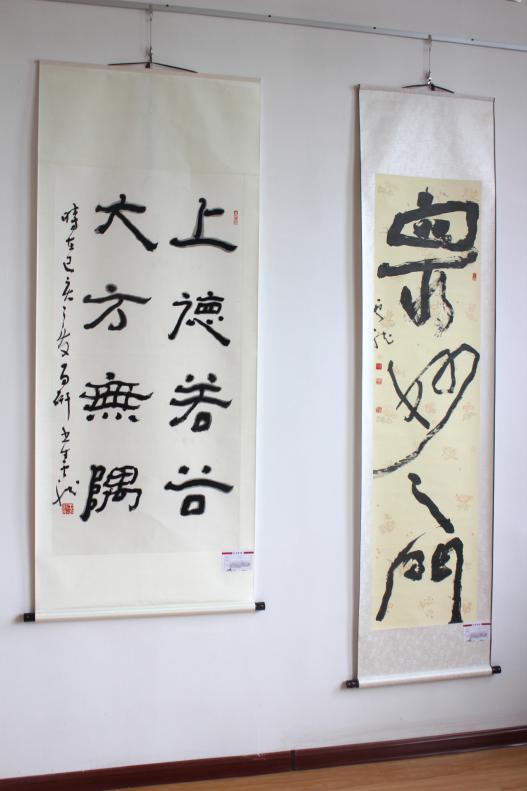 上德若谷
大方無隅
時在己亥之
衆妙之門